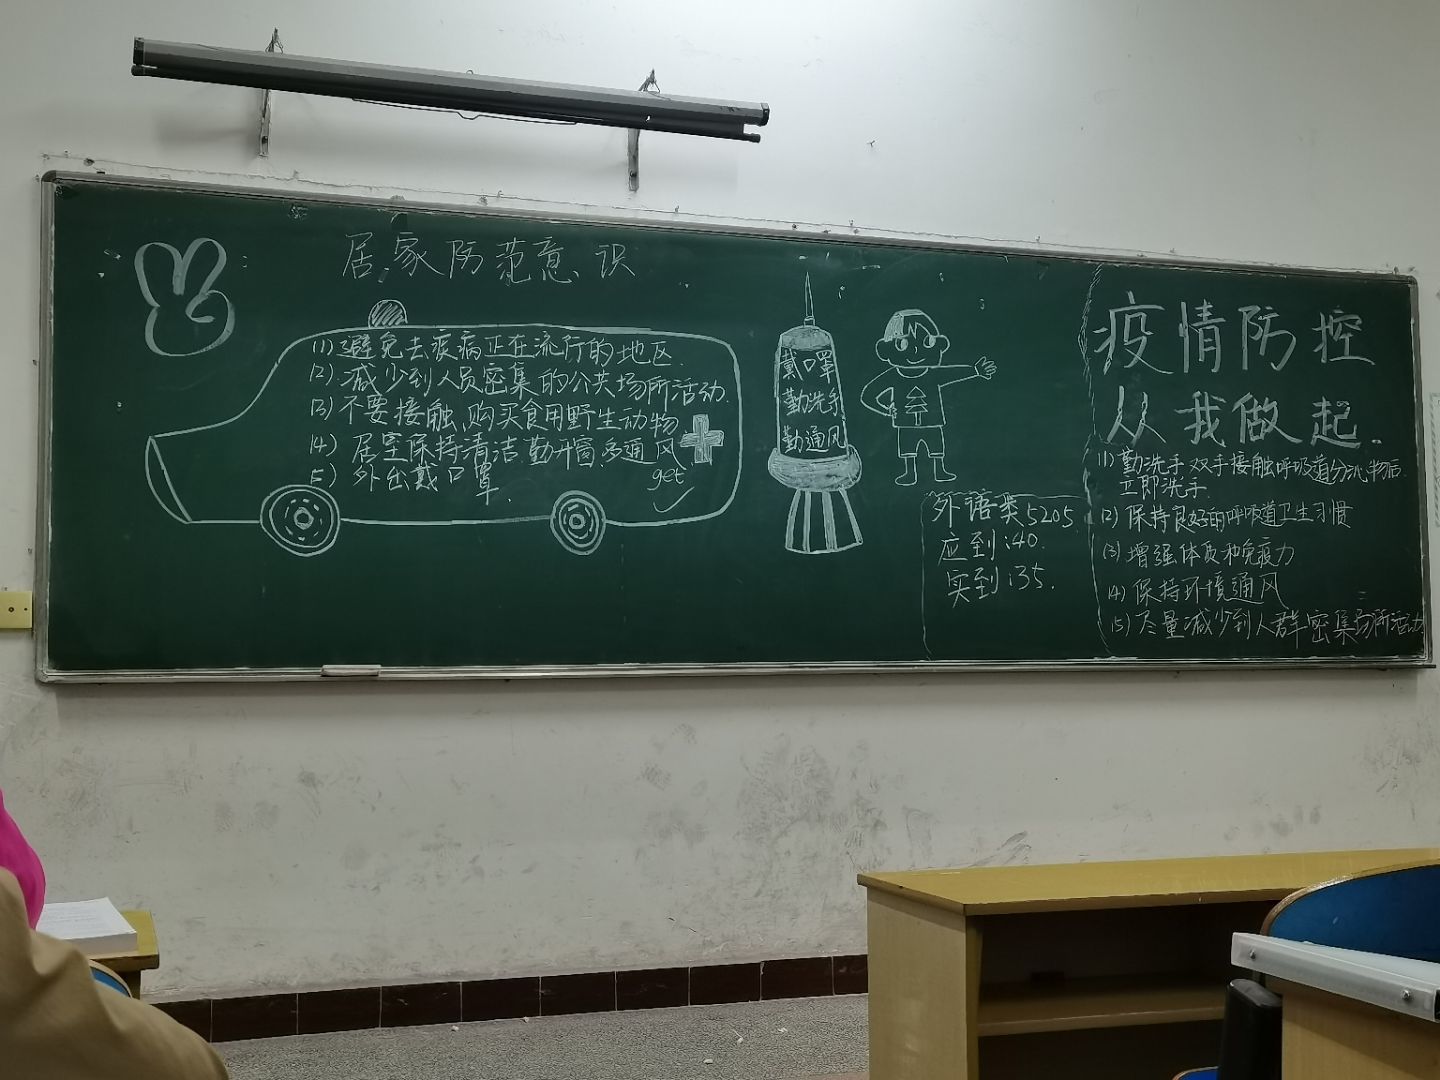 居家防范意识
(1) 避免去疾病正在流行的地区.
(2) 减少到人员密集的公共场所活动.
(3) 不要接触.购买食用野生动物
(4) 居室保持清洁.勤开窗.多通风
(5) 外出戴口罩.
get
戴口罩
勤洗手
勤通风
外语类5205
应到:40.
实到:35.
疫情防控
从我做起.
(1) 勤洗手.双手接触呼吸道分泌物后
立即洗手.
(2) 保持良好的呼吸道卫生习惯
(3) 增强体质和免疫力
(4) 保持环境通风
(5) 尽量减少到人群密集场所活动